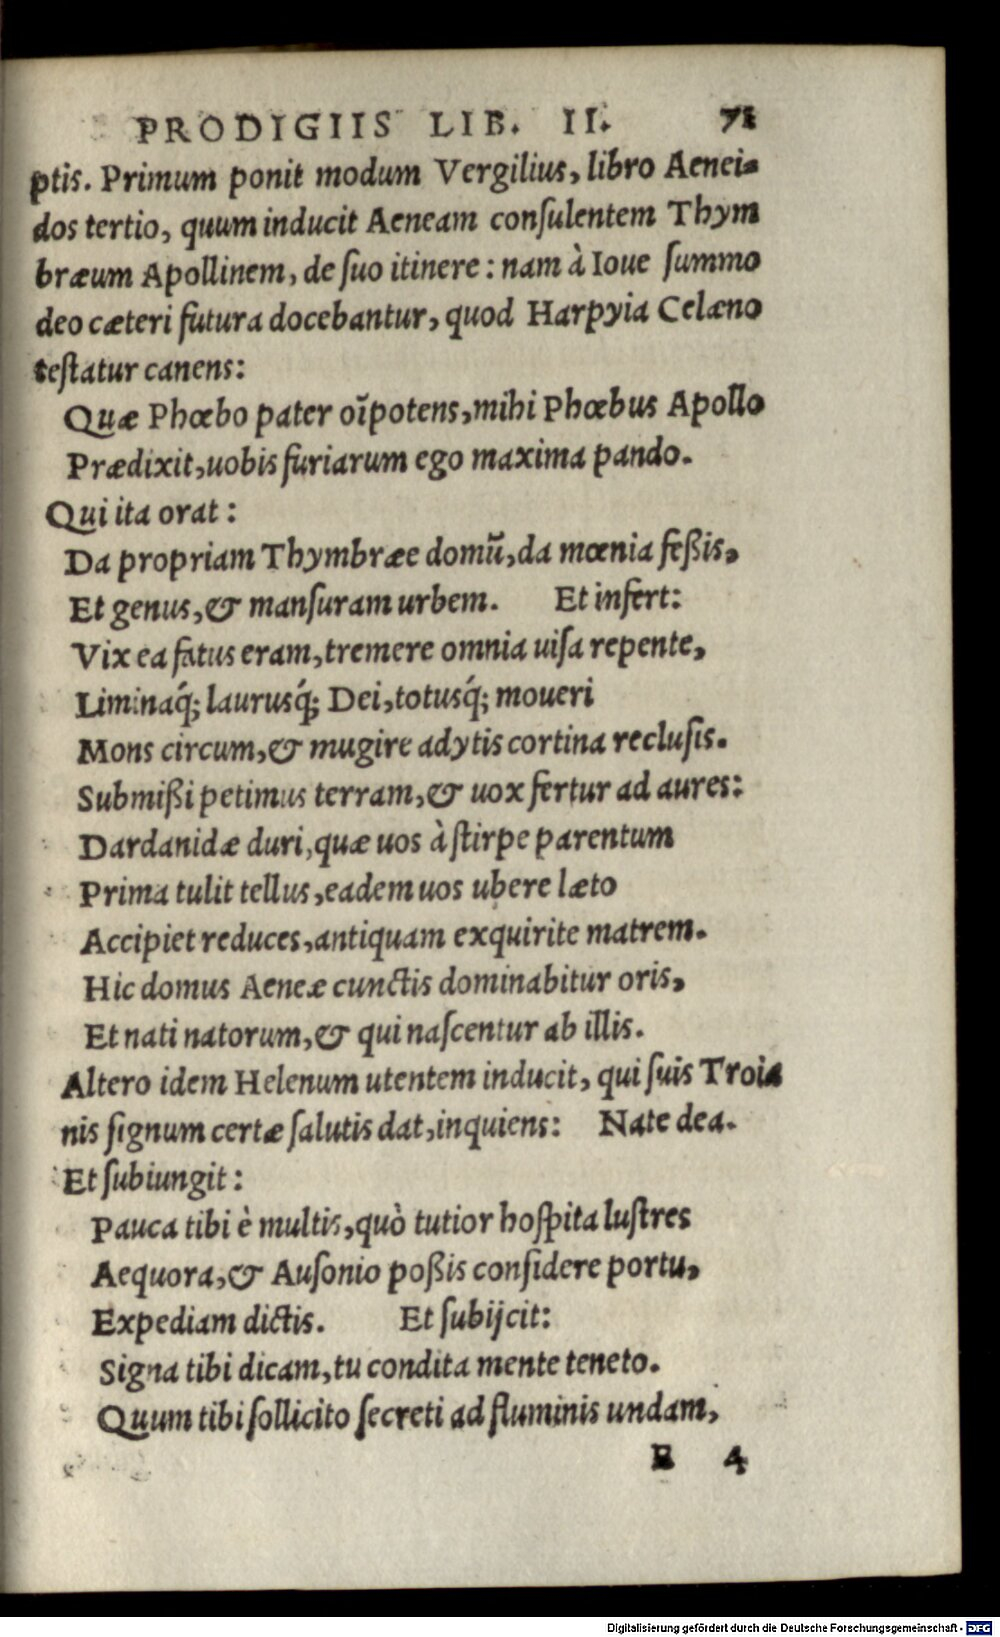 PRODIGIIS LIB. II. 71
ptis. Primum ponit modum Vergilius, libro Aenei-
dos tertio, quum inducit Aeneam conſulentem Thym
bræum Apollinem, de ſuo itinere: nam à Ioue ſummo
deo cæteri futura docebantur, quod Harpyia Celæno
teſtatur canens:
Quæ Phœbo pater oīpotens, mihi Phœbus Apollo
Prædixit, uobis furiarum ego maxima pando.
Qui ita orat:
Da propriam Thymbræe domū, da mœnia feßis,
Et genus, & manſuram urbem. Et infert:
Vix ea fatus eram, tremere omnia uiſa repente,
Liminaq́; laurusq́; Dei, totusq́; moueri
Mons circum, & mugire adytis cortina recluſis.
Submißi petimus terram, & uox fertur ad aures:
Dardanidæ duri, quæ uos à ſtirpe parentum
Prima tulit tellus, eadem uos ubere læto
Accipiet reduces, antiquam exquirite matrem.
Hic domus Aeneæ cunctis dominabitur oris,
Et nati natorum, & qui naſcentur ab illis.
Altero idem Helenum utentem inducit, qui ſuis Troia
nis ſignum certæ ſalutis dat, inquiens: Nate dea.
Et ſubiungit:
Pauca tibi è multis, quò tutior hoſpita luſtres
Aequora, & Auſonio poßis conſidere portu,
Expediam dictis. Et ſubijcit:
Signa tibi dicam, tu condita mente teneto.
Quum tibi ſollicito ſecreti ad fluminis undam,
E 4
Digitalisierung gefördert durch die Deutsche Forschungsgemeinschaft - DFG